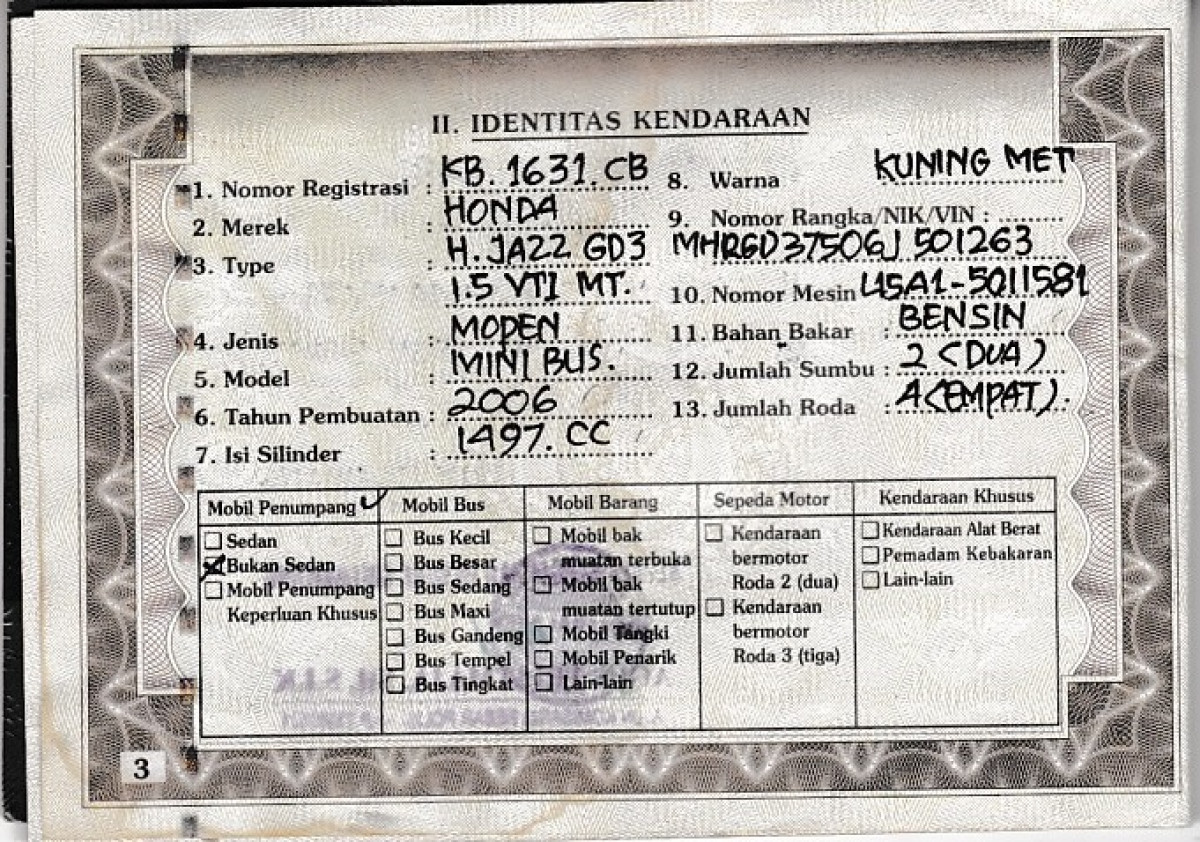 II. IDENTITAS KENDARAAN
1. Nomor Registrasi : KB. 1631. CB
2. Merek : HONDA
3. Type : H. JAZZ GD3
1.5 VTI MT.
4. Jenis : MOPEN
5. Model : MINI BUS.
6. Tahun Pembuatan : 2006
7. Isi Silinder : 1497. CC
8. Warna KUNING MET
9. Nomor Rangka/NIK/VIN : ........
MHRGD37506J 501263
10. Nomor Mesin L15A1-5011581
11. Bahan Bakar : BENSIN
12. Jumlah Sumbu : 2 (DUA)
13. Jumlah Roda : 4 (EMPAT).
Mobil Penumpang
Sedan
Bukan Sedan
Mobil Penumpang
Keperluan Khusus
Mobil Bus
Bus Kecil
Bus Besar
Bus Sedang
Bus Maxi
Bus Gandeng
Bus Tempel
Bus Tingkat
Mobil Barang
Mobil bak
muatan terbuka
Mobil bak
muatan tertutup
Mobil Tangki
Mobil Penarik
Lain-lain
Sepeda Motor
Kendaraan
bermotor
Roda 2 (dua)
Kendaraan
bermotor
Roda 3 (tiga)
Kendaraan Khusus
Kendaraan Alat Berat
Pemadam Kebakaran
Lain-lain
3